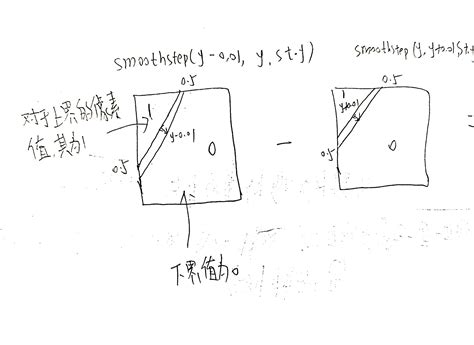 smoothstep(y-0.01, y, st.y)
smoothstep(y, y+0.01, st.y
0.5
0.5
对于上界的像素
值,其为1
1
y-0.01
0
0.5
-
1
y+0.01
0
0.5
=
下界,值为0